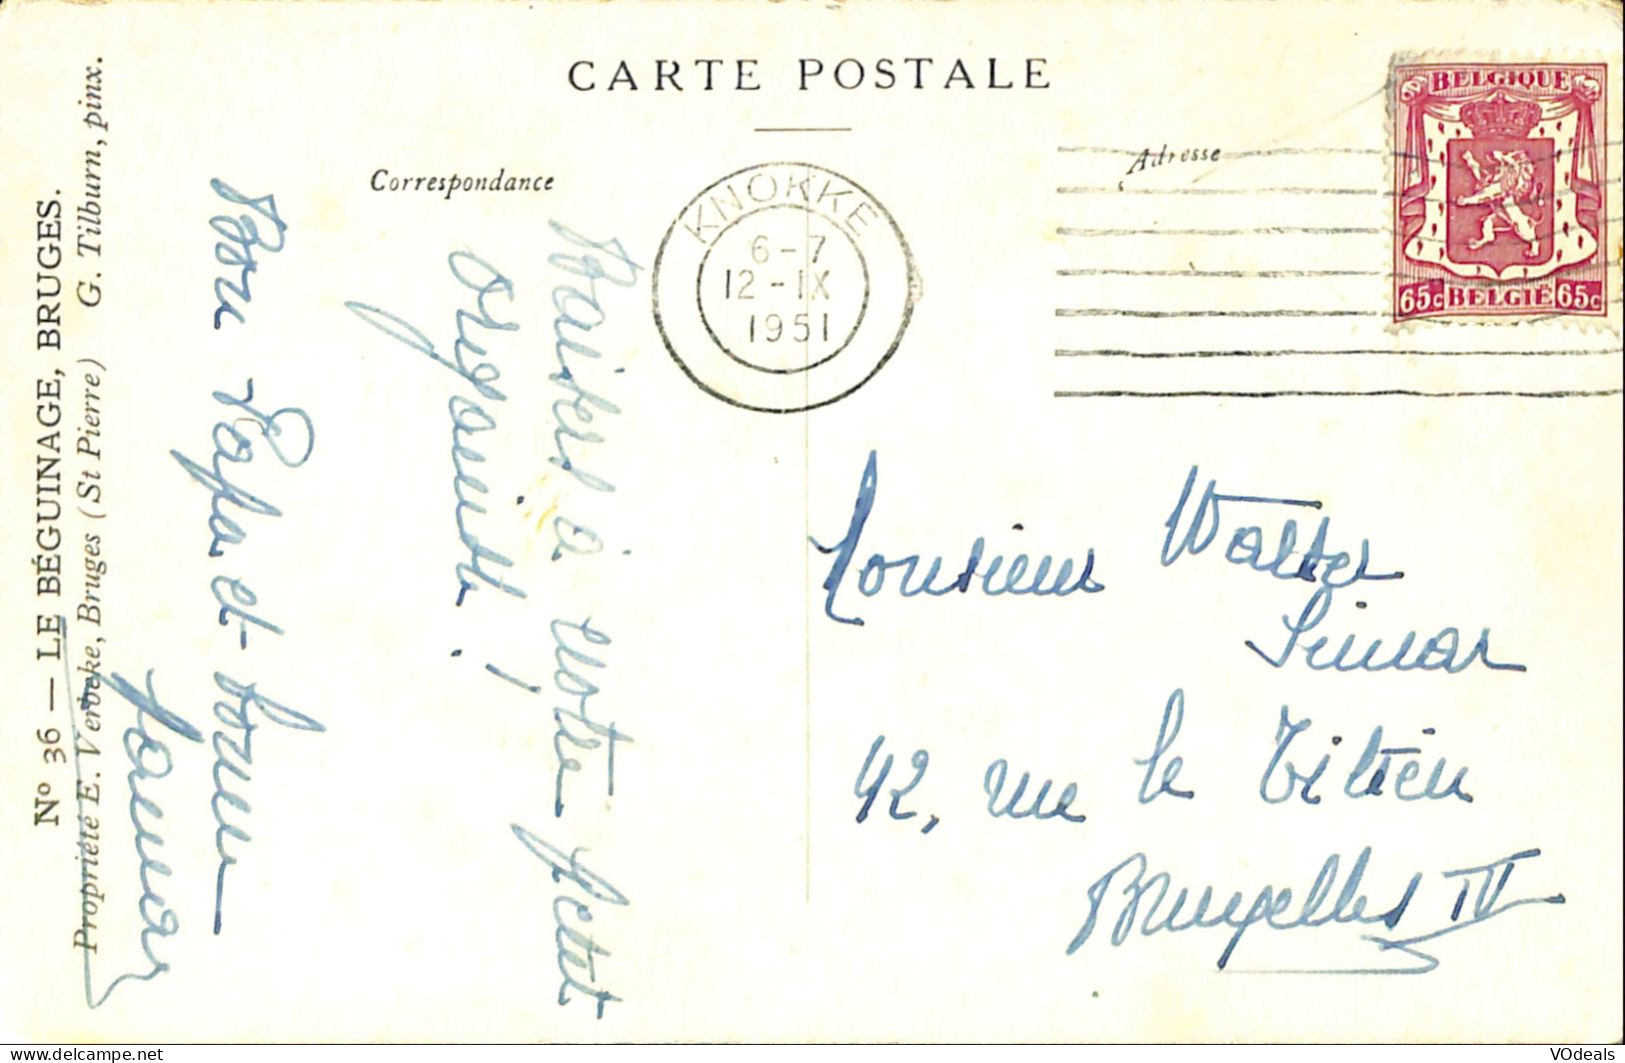 CARTE POSTALE
Correspondance
Adresse
KNOKKE
6-7
12-IX
1951
BELGIQUE
65c BELGIE 65c
Nº 36 — LE BÉGUINAGE, BRUGES.
Propriété E. Verbeke, Bruges (St Pierre) G. Tilburn, pinx.
Baisers à votre petit
organite !
Bon Papa et bonne
Monsieur Walter
Simar
42, rue le Titien
Bruxelles IV
VOdeals